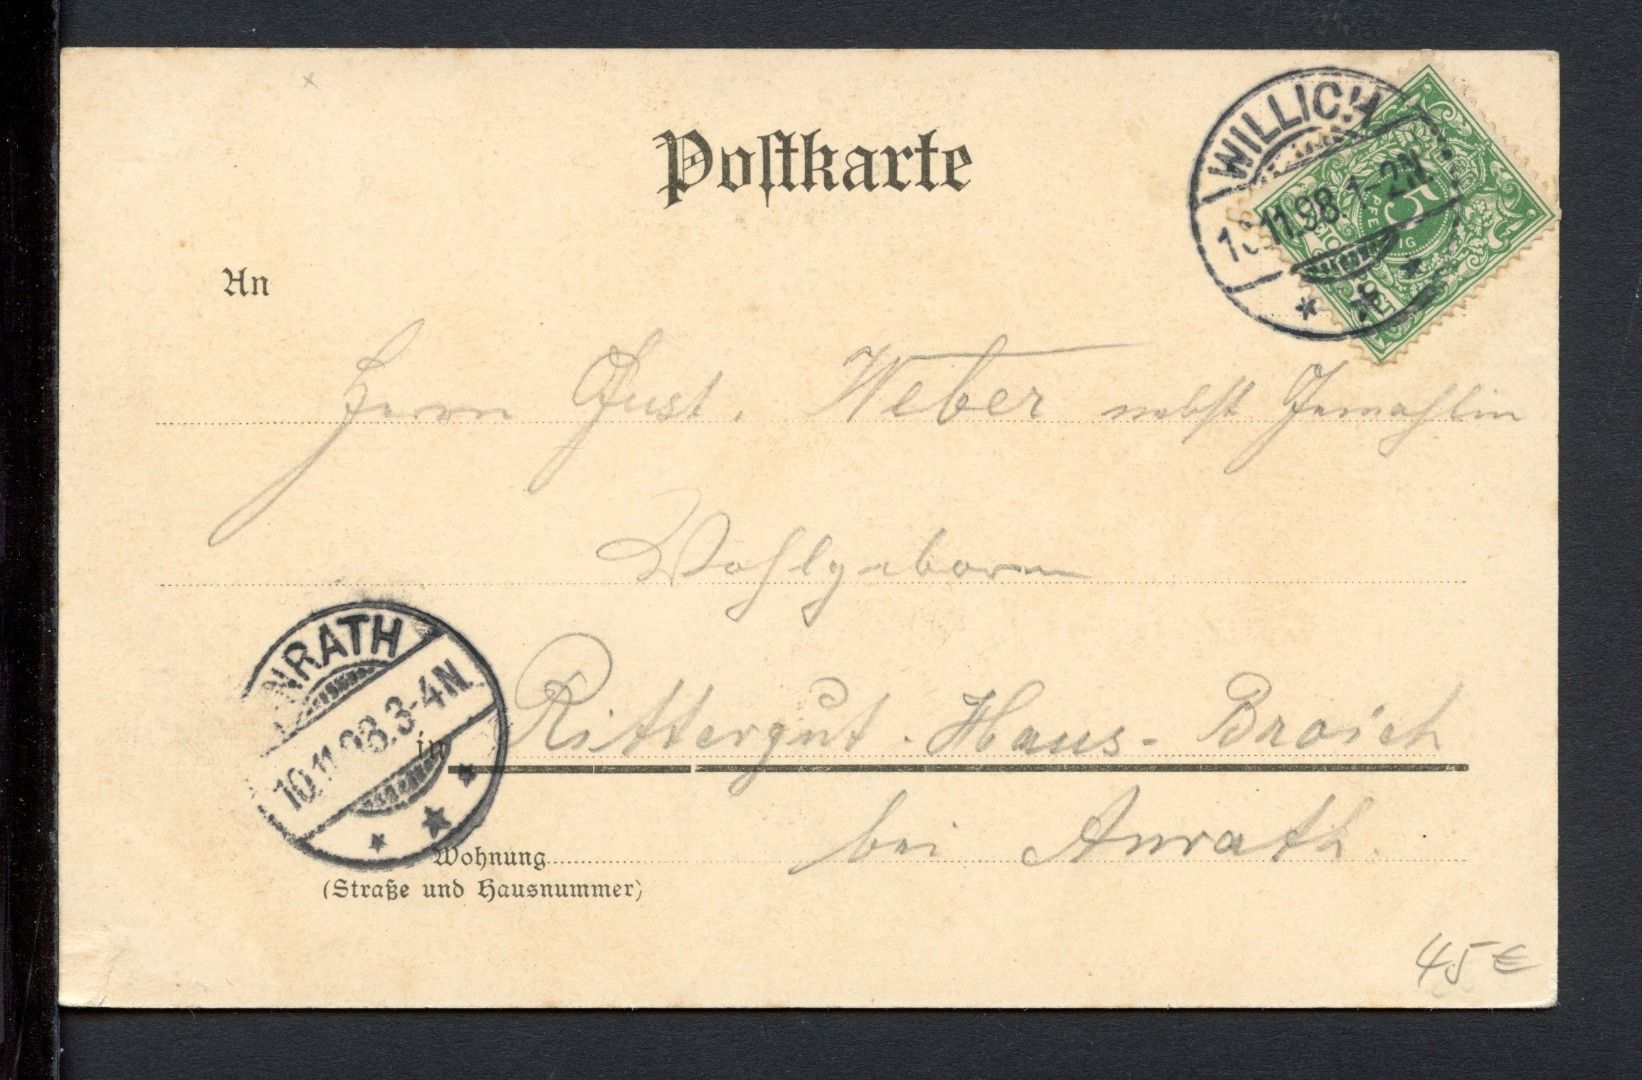 Postkarte
WILLICH
11.98. 1-2N.
5
PFENNIG
An
Herrn Gust. Weber nebst Gemahlin
Wohlgeborn
ANRATH
10.11.98.3-4N.
in Rittergut-Haus-Broich
bei Anrath.
Wohnung
(Straße und Hausnummer)
45 €